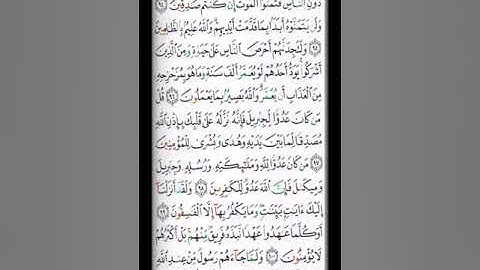 دُونِ ٱلنَّاسِ فَتَمَنَّوُا۟ ٱلْمَوْتَ إِن كُنتُمْ صَٰدِقِينَ ٩٤
وَلَن يَتَمَنَّوْهُ أَبَدًۢا بِمَا قَدَّمَتْ أَيْدِيهِمْ وَٱللَّهُ عَلِيمٌۢ بِٱلظَّٰلِمِينَ
٩٥ وَلَتَجِدَنَّهُمْ أَحْرَصَ ٱلنَّاسِ عَلَىٰ حَيَوٰةٍ وَمِنَ ٱلَّذِينَ
أَشْرَكُوا۟ يَوَدُّ أَحَدُهُمْ لَوْ يُعَمَّرُ أَلْفَ سَنَةٍ وَمَا هُوَ بِمُزَحْزِحِهِۦ
مِنَ ٱلْعَذَابِ أَن يُعَمَّرَ وَٱللَّهُ بَصِيرٌۢ بِمَا يَعْمَلُونَ ٩٦ قُلْ
مَن كَانَ عَدُوًّا لِّجِبْرِيلَ فَإِنَّهُۥ نَزَّلَهُۥ عَلَىٰ قَلْبِكَ بِإِذْنِ ٱللَّهِ
مُصَدِّقًا لِّمَا بَيْنَ يَدَيْهِ وَهُدًى وَبُشْرَىٰ لِلْمُؤْمِنِينَ
٩٧ مَن كَانَ عَدُوًّا لِّلَّهِ وَمَلَٰٓئِكَتِهِۦ وَرُسُلِهِۦ وَجِبْرِيلَ
وَمِيكَىٰلَ فَإِنَّ ٱللَّهَ عَدُوٌّ لِّلْكَٰفِرِينَ ٩٨ وَلَقَدْ أَنزَلْنَآ
إِلَيْكَ ءَايَٰتٍۭ بَيِّنَٰتٍ وَمَا يَكْفُرُ بِهَآ إِلَّا ٱلْفَٰسِقُونَ ٩٩
أَوَكُلَّمَا عَٰهَدُوا۟ عَهْدًا نَّبَذَهُۥ فَرِيقٌ مِّنْهُم بَلْ أَكْثَرُهُمْ
لَا يُؤْمِنُونَ ١٠٠ وَلَمَّا جَآءَهُمْ رَسُولٌ مِّنْ عِندِ ٱللَّهِ